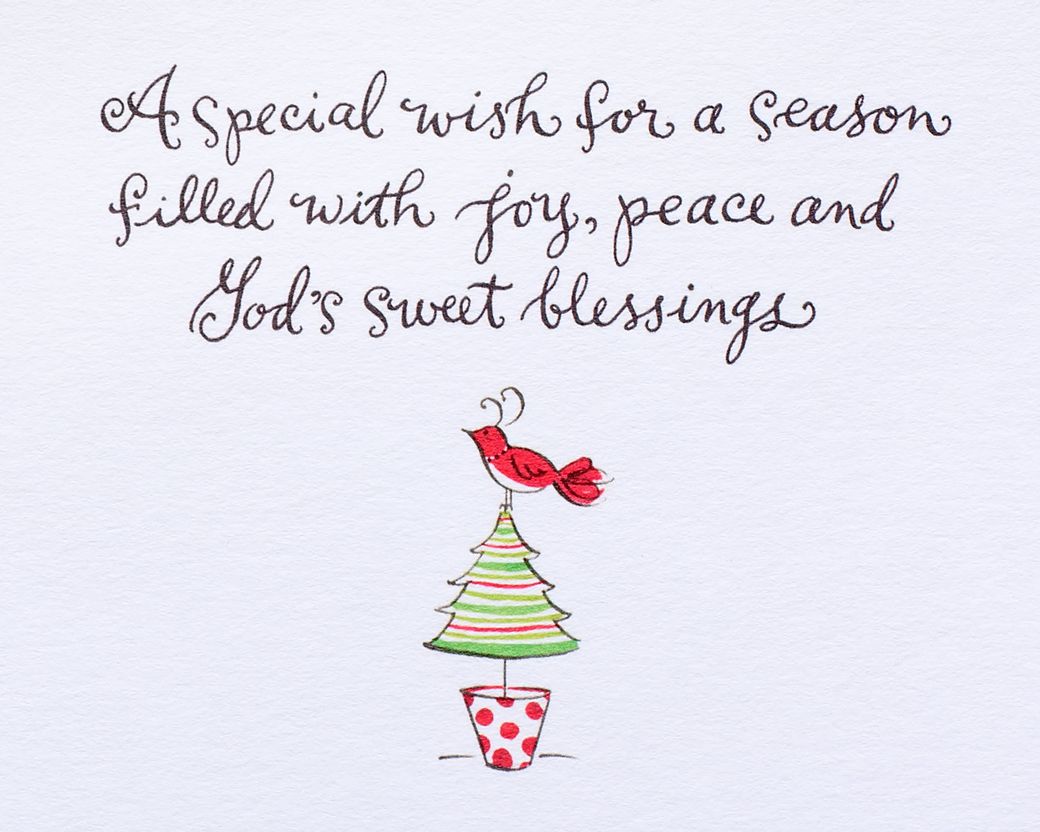 A special wish for a season
filled with joy, peace and
God's sweet blessings